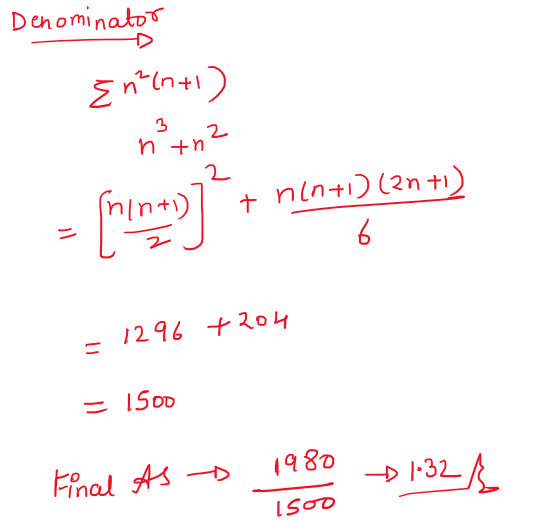 Denominator
Σ n²(n+1)
n³+n²
= [n(n+1)/2]² + n(n+1)(2n+1)/6
= 1296 + 204
= 1500
Final AS → 1980/1500 → 1.32